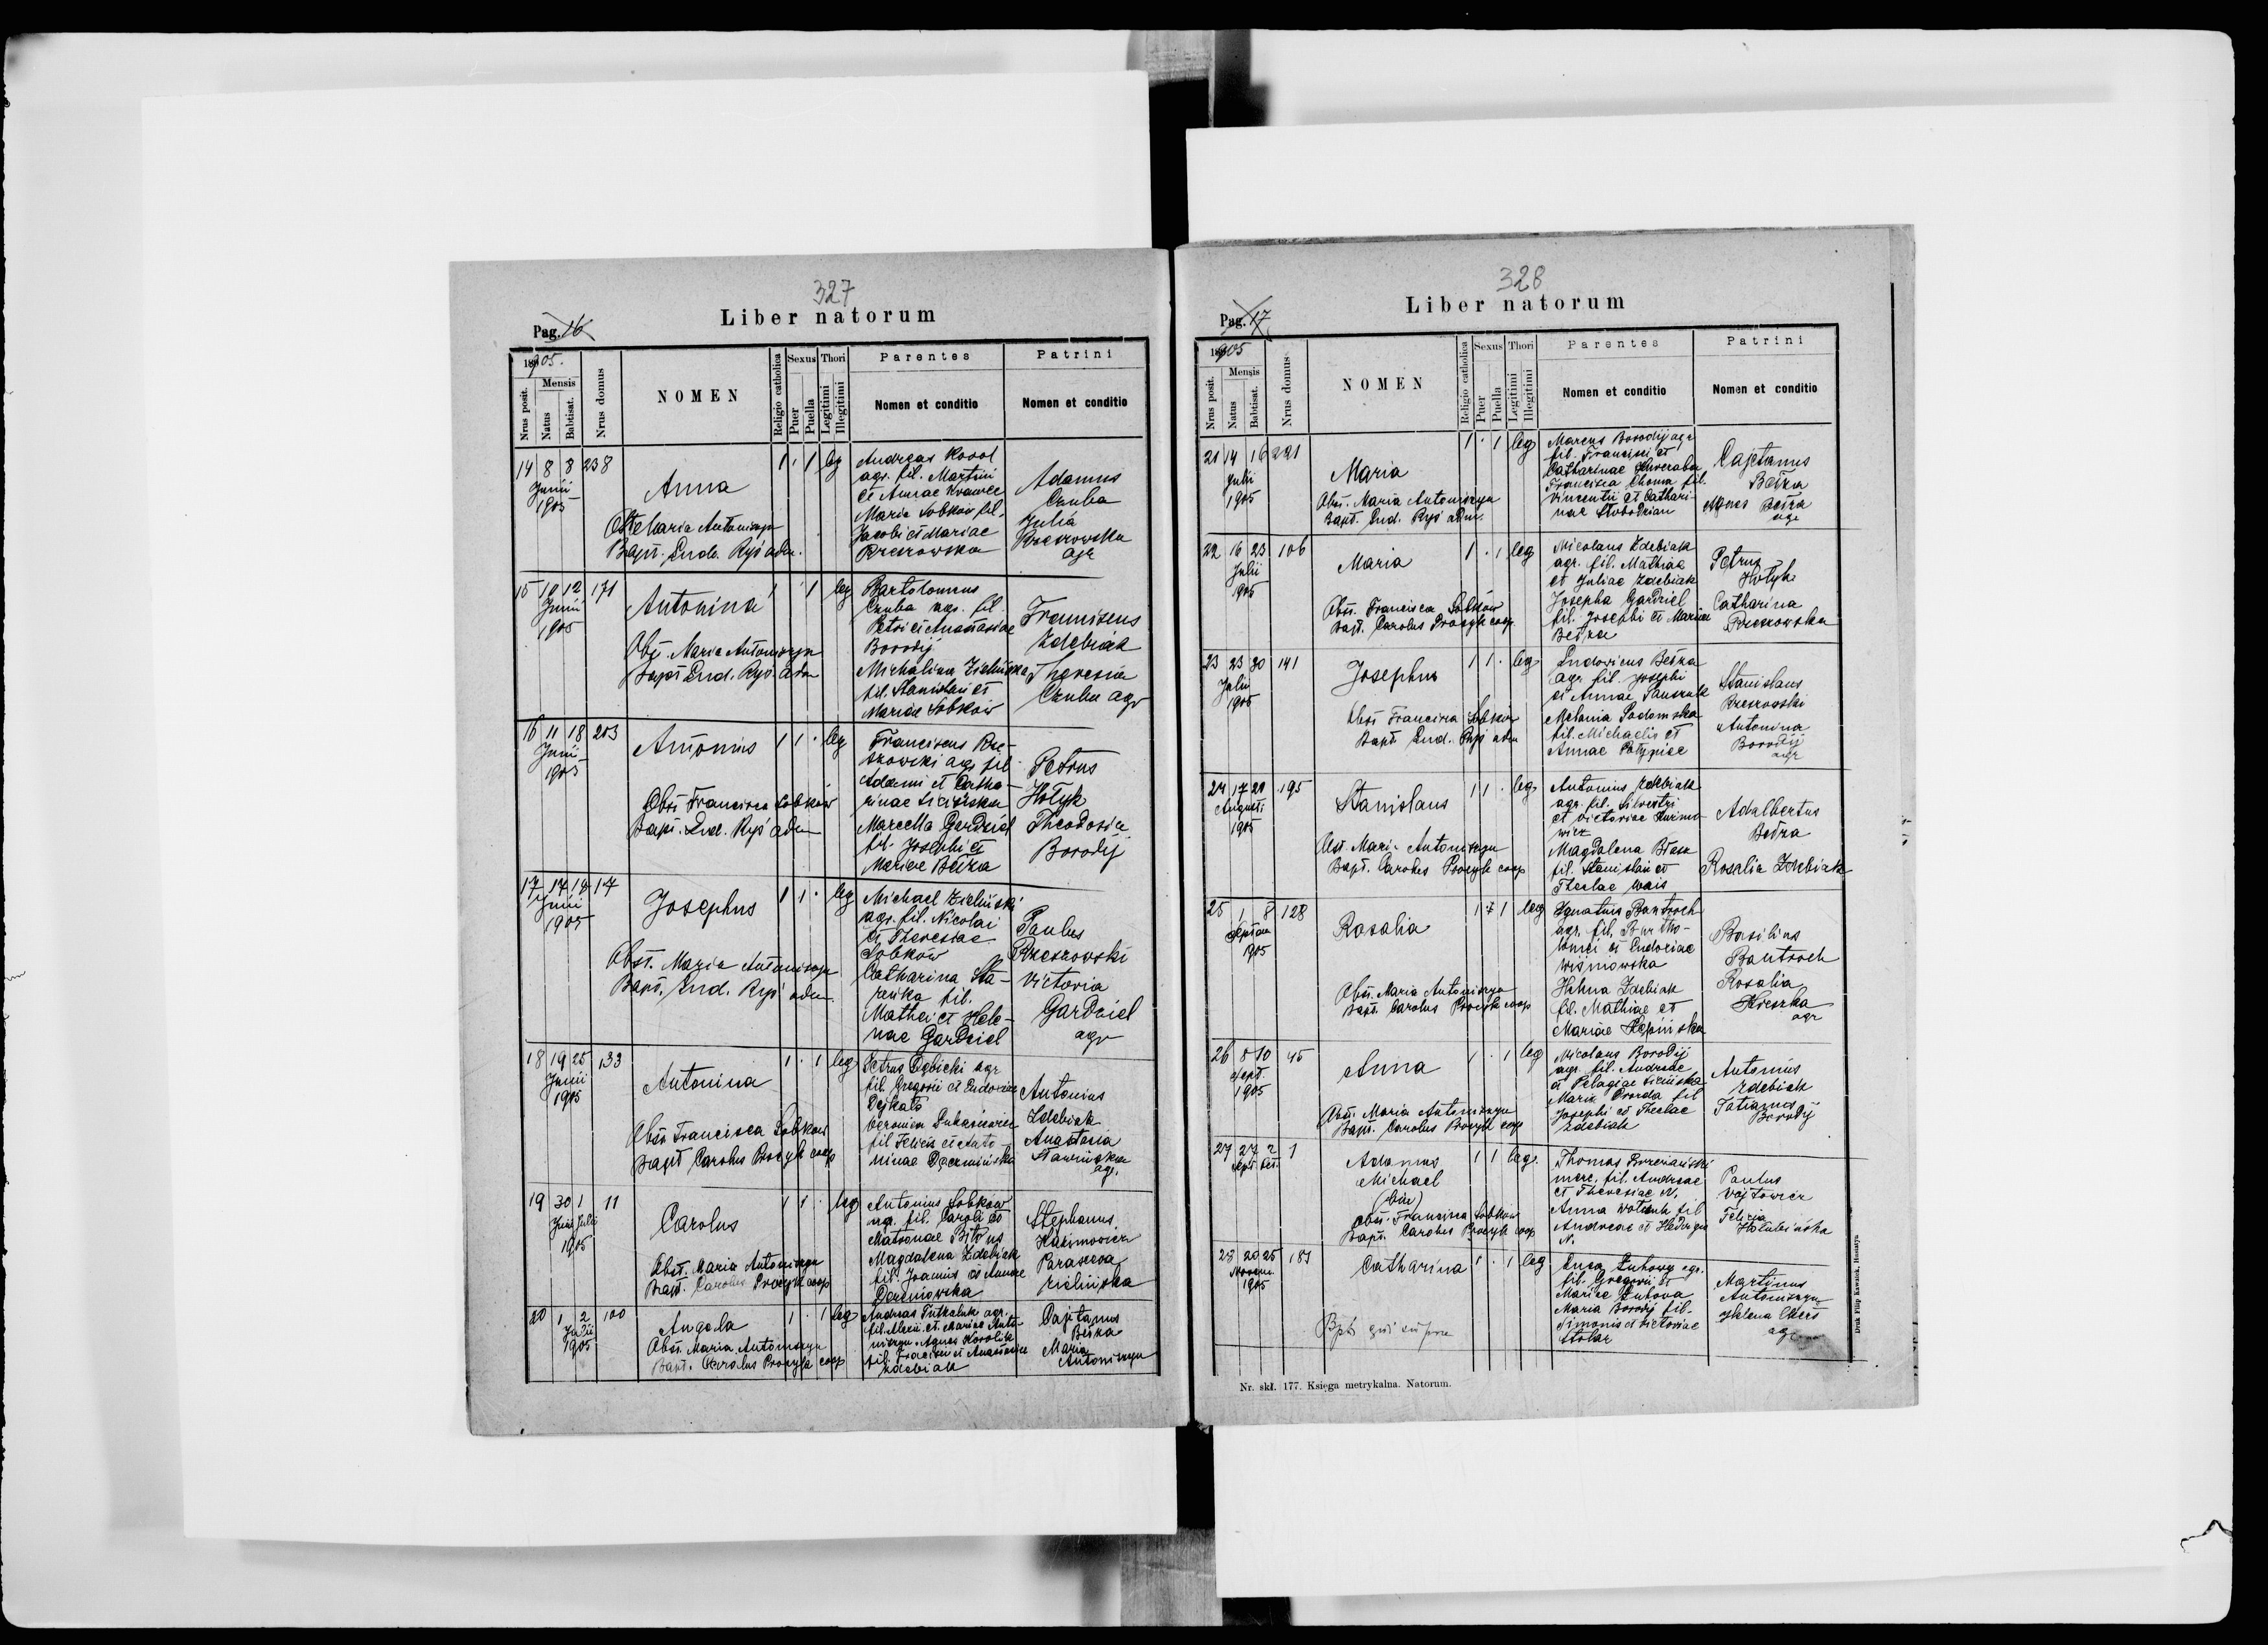 327
Liber natorum
Pag. 16
1905.
Nrus posit.
Mensis
Natus
Babtisat.
Nrus domus
NOMEN
Religio catholica
Sexus
Puer
Puella
Thori
Legitimi
Illegitimi
Parentes
Nomen et conditio
Patrini
Nomen et conditio
14 8 8 238
Junii
1905
Anna
Maria Antoniszyn
Bapt. Lud. Ryś adm.
1 . 1 leg
Andreas Korol
agr. fil. Martini
et Annae Krawiec
Maria Sobków fil.
Jacobi et Mariae
Brzezowska
Adamus
Czuba
Julia
Brzezowska
agr
15 10 12 171
Junii
1905
Antonina
Obst. Maria Antoniszyn
Bapt Lud. Ryś adm
1 1 leg
Bartolomeus
Czuba agr. fil.
Petri et Anastasiae
Borodij
Michalina Zielińska
fil. Stanislai et
Mariae Sobków
Franciscus
Zdebiak
Theresia
Czuba agr
16 11 18 203
Junii
1905
Antonius
Obst Francisca Sobków
Bapt. Lud. Ryś adm
1 1 . leg
Franciscus
agr fil
Adami et Catha-
rinae
Marcella Gardziel
fil. Josephi et
Mariae Beżka
Petrus
Hołyk
Theodosia
Borodij
17 17 18 17
Junii
1905
Josephus
Obst. Maria Antoniszyn
Bapt. Lud. Ryś adm.
1 1 . leg
Michael Zieliński
agr. fil. Nicolai
et Theresiae
Sobków
Catharina
fil.
Mathei et Hele-
nae Gardziel
Paulus
Brzezowski
Victoria
Gardziel
agr
18 19 25 133
Junii
1905
Antonina
Obst Francisca Sobkow
Bapt Carolus Procyk coop
1 . 1 leg
Petrus Dębicki agr
fil Gregorii et Ludovicae
Veronica Łukasiewicz
fil Felicis et Anto-
ninae
Antonius
Zdebiak
Anastasia
agr.
19 30 1 11
Junii Julii
1905
Carolus
Obst. Maria Antoniszyn
Bapt. Carolus Procyk coop
1 1 . leg
Antonius Sobkow
ag. fil. Caroli et
Matronae
Magdalena Zdebiak
fil. Joannis et Annae
Stephanus
Kazimowicz
Parasceva
Zielińska
20 1 2 100
Julii
1905
Angela
Obst. Maria Antoniszyn
Bapt. Carolus Procyk coop
1 . 1 leg
Andreas agr.
fil. Alexii et Mariae Anto-
niszyn. Agnes Korolik
fil. Francisci et Anastasiae
Zdebiak
Cajetanus
Beżka
Maria
Antoniszyn
328
Liber natorum
Pag. 17
1905
Nrus posit.
Mensis
Natus
Babtisat.
Nrus domus
NOMEN
Religio catholica
Sexus
Puer
Puella
Thori
Legitimi
Illegitimi
Parentes
Nomen et conditio
Patrini
Nomen et conditio
21 14 16 221
Julii
1905
Maria
Obst. Maria Antoniszyn
Bapt. Lud. Ryś adm.
1 . 1 leg
Marcus Borodij agr
fil. Francisci et
Catharinae
Francisca Choma fil.
Vincentii et Cathari-
nae Słobodzian
Cajetanus
Beżka
Agnes Beżka
agr
22 16 23 106
Julii
1905
Maria
Obst. Francisca Sobków
Bapt. Carolus Procyk coop
1 . 1 leg
Nicolaus Zdebiak
agr. fil. Mathiae
et Juliae Zdebiak
Josepha Gardziel
fil. Josephi et Mariae
Beżka
Petrus
Hołyk
Catharina
Brzezowska
23 23 30 141
Julii
1905
Josephus
Obst Francisca Sobków
Bapt. Lud. Ryś adm
1 1 . leg
Ludovicus Beżka
agr. fil. Josephi
et Annae
Melania Sadomska
fil. Michaelis et
Annae
Stanislaus
Brzezowski
Antonina
Borodij
agr
24 17 20 195
Augusti
1905
Stanislaus
Obst. Maria Antoniszyn
Bapt. Carolus Procyk coop
1 1 . leg
Antonius Zdebiak
agr. fil. Silvestri
et Victoriae
Magdalena
fil. Stanislai et
Theclae Wais
Adalbertus
Beżka
Rosalia Zdebiak
25 1 8 128
1905
Rosalia
Obst. Maria Antoniszyn
Bapt. Carolus Procyk coop
1 1 leg
Ignatius Bantroch
agr. fil. Bartho-
lomei et Ludovicae
Wiśniowska
Helena Zdebiak
fil. Mathiae et
Mariae
Basilius
Bantroch
Rosalia
agr
26 8 10 45
Sept.
1905
Anna
Obst. Maria Antoniszyn
Bapt. Carolus Procyk coop
1 . 1 leg
Nicolaus Borodij
agr. fil. Andreae
et Pelagiae
Maria fil
Josephi et Theclae
Zdebiak
Antonius
Zdebiak
Tatianna
Borodij
27 27 2 1
Sept. Oct.
Adamus
Michael
Obst. Francisca Sobkow
Bapt. Carolus Procyk coop
1 1 leg.
Thomas
merc. fil. Andreae
et Theresiae N.
Anna fil
Andreae et
N.
Paulus
Wojtowicz
Felicia
28 20 25 187
1905
Catharina
Bpt. qui supra
1 . 1 leg
Luca agr.
fil. Gregorii et
Mariae
Maria Borodij fil.
Simonis et Victoriae
Stolar
Martinus
Antoniszyn
Helena
agr
Druk Filip Kawalek, Husiatyn
Nr. skł. 177. Księga metrykalna. Natorum.